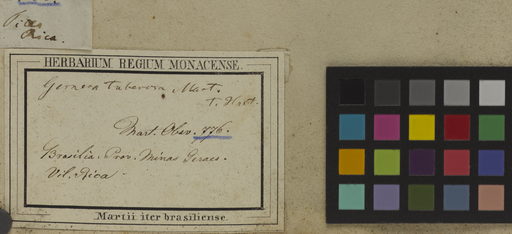 Rica.
HERBARIUM REGIUM MONACENSE.
tuberosa Mart.
Mart. Obs. 776.
Brasilia. Prov. Minas Geraes.
Vil. Rica.
Martii iter brasiliense.